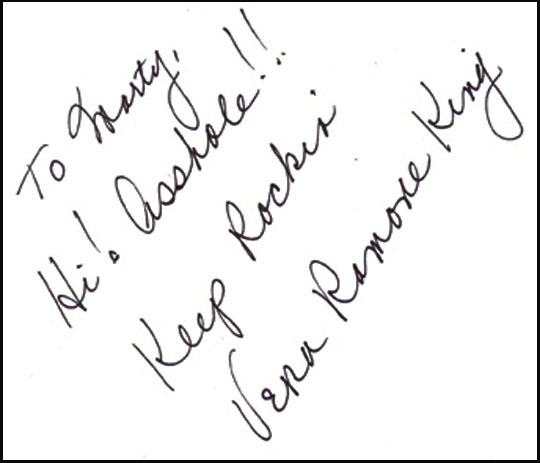 To Marty,
Hi! Asshole!!!
Keep Rockin'
Vera Ramone King